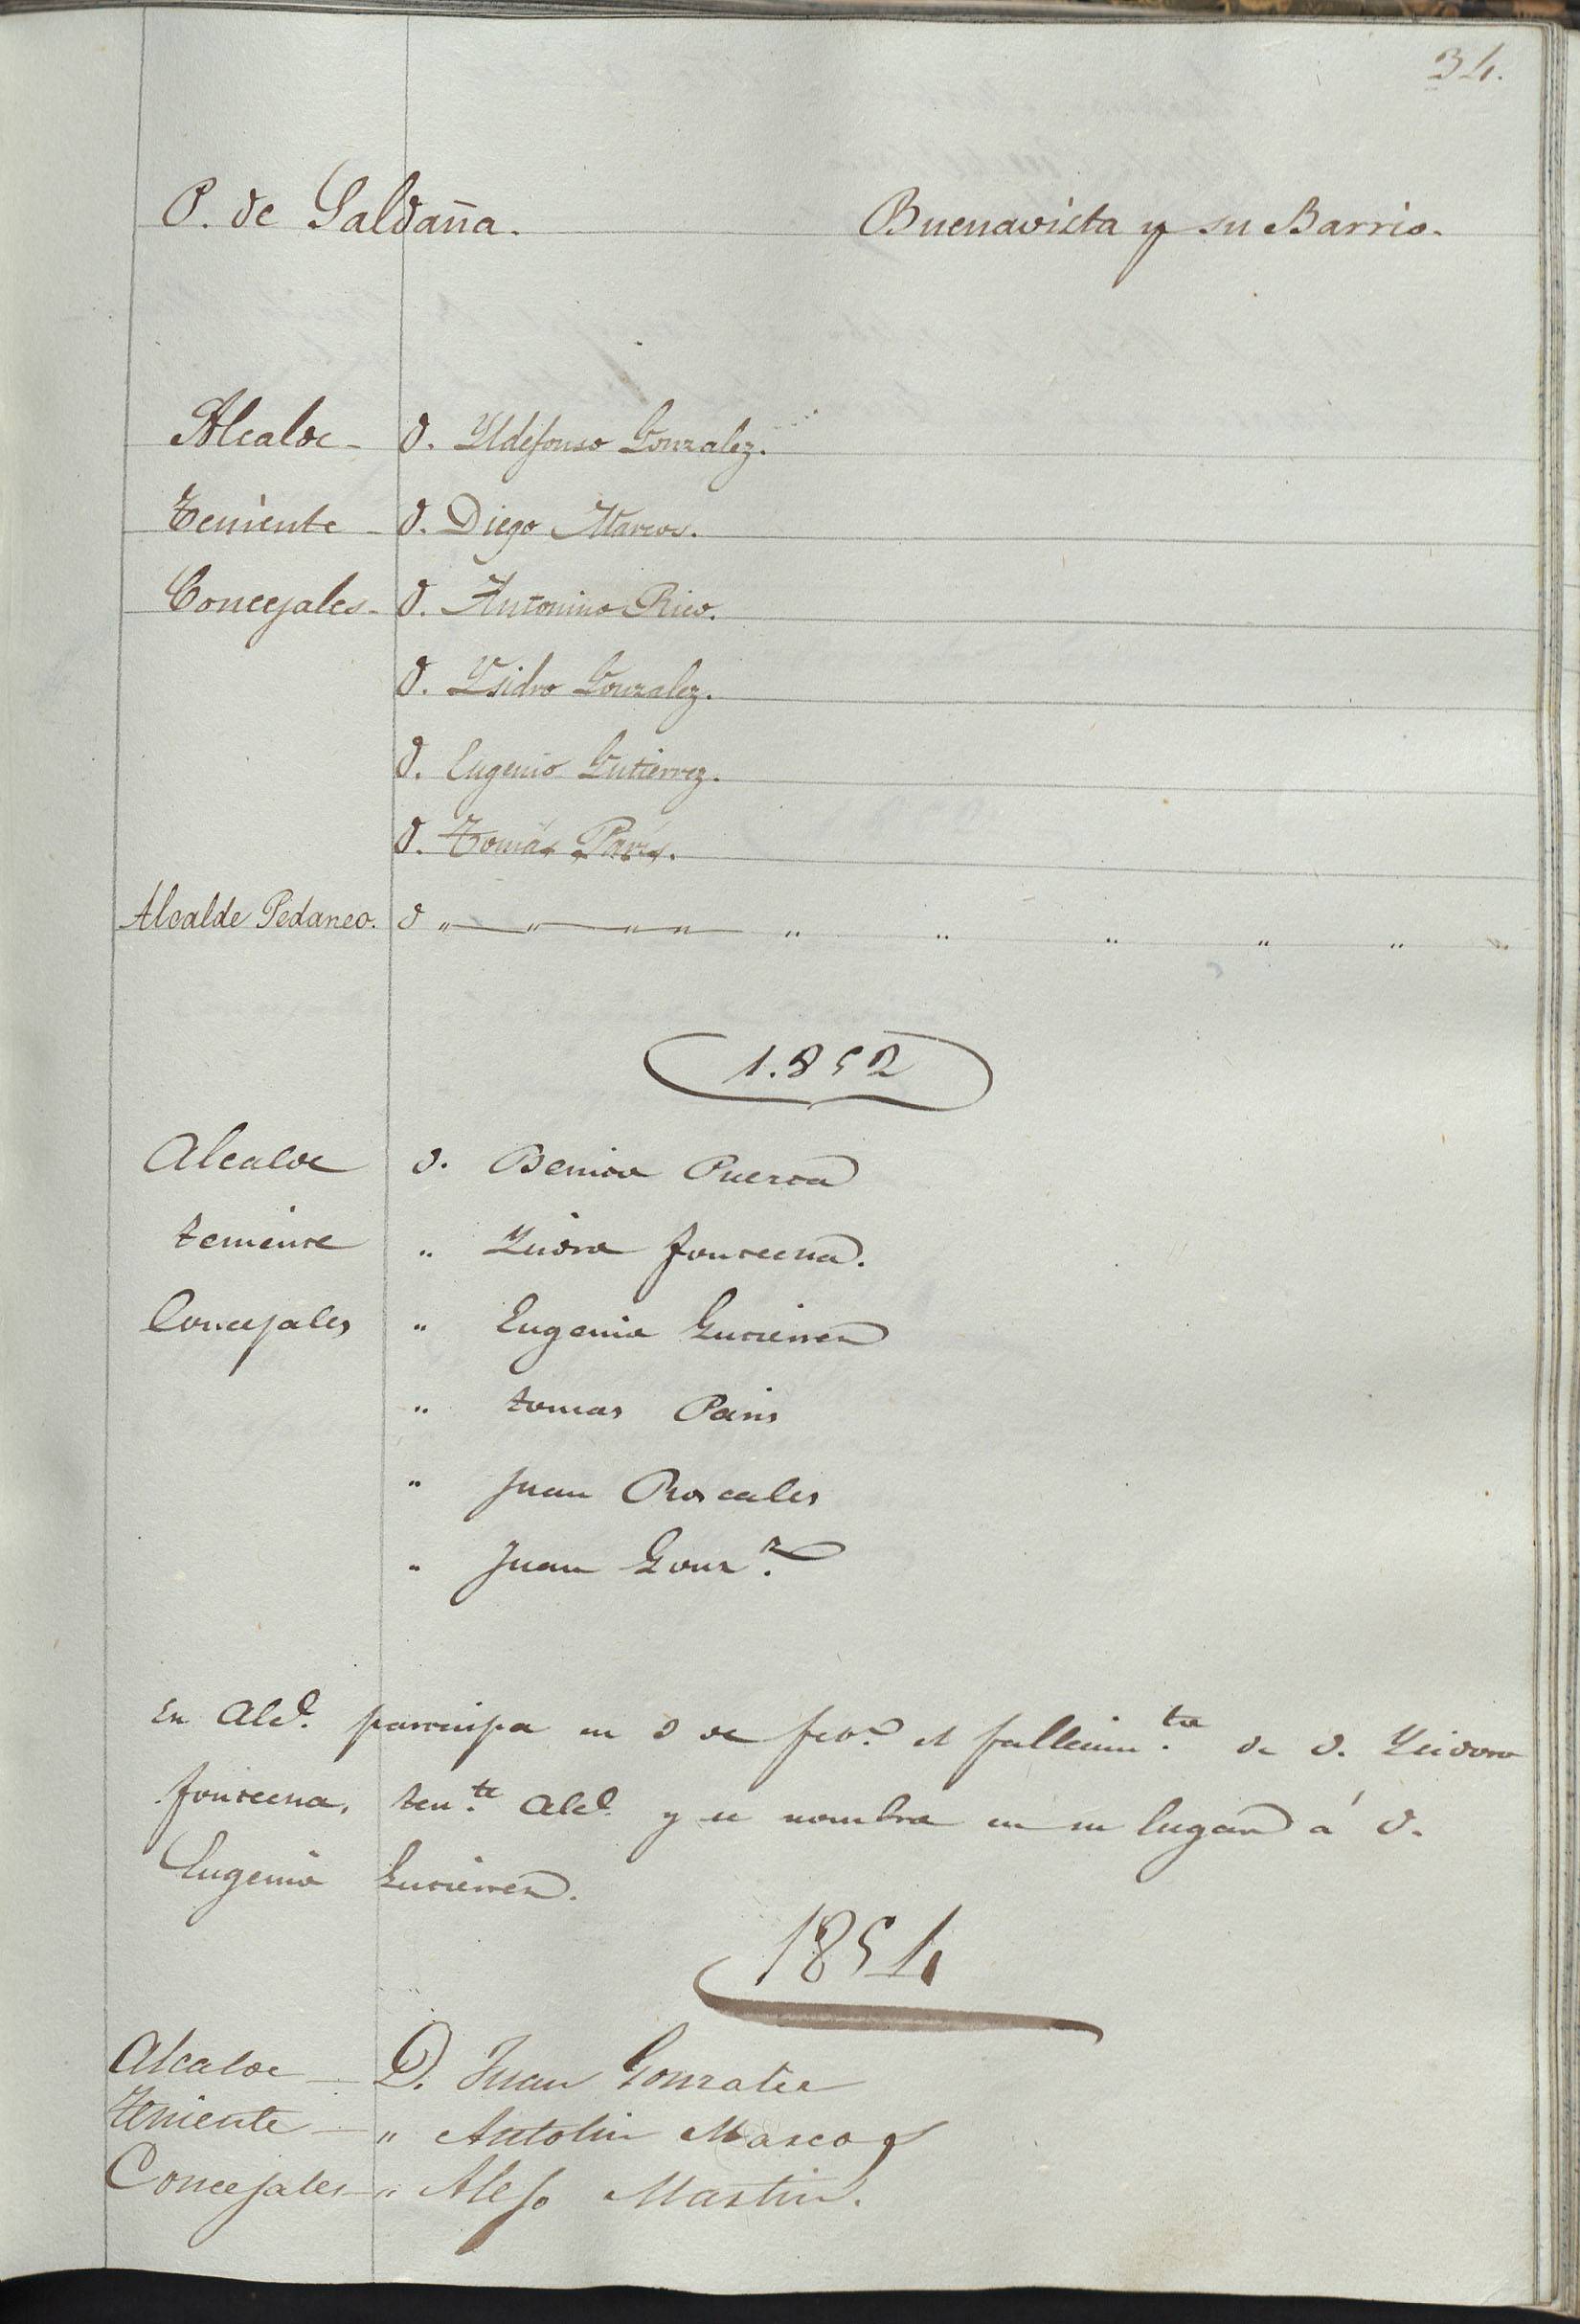 34.
P. de Saldaña. Buenavista y su Barrio.
Alcalde - D. Yldefonso Gonzalez.
Teniente - D. Diego Marcos.
Concejales - D. Antonino Rico.
D. Ysidro Gonzalez.
D. Eugenio Gutierrez.
D. Tomás París.
Alcalde Pedaneo. D " " " " " " " " "
1.852
Alcalde D. Benito Puerta
teniente " Ysidro fontecha.
Concejales " Eugenio Gutierrez
" tomas Paris
" Juan Roscales
" Juan Gonz.z
En Alc.e participa en 3 de feb.o el fallecim.to de D. Ysidoro
fontecha, ten.te Alc.e y se nombra en su lugar á D.
Eugenio Gutierrez.
1854
Alcalde - D. Juan Gonzalez
Teniente - " Antolin Marcos
Concejales - " Alejo Martin.